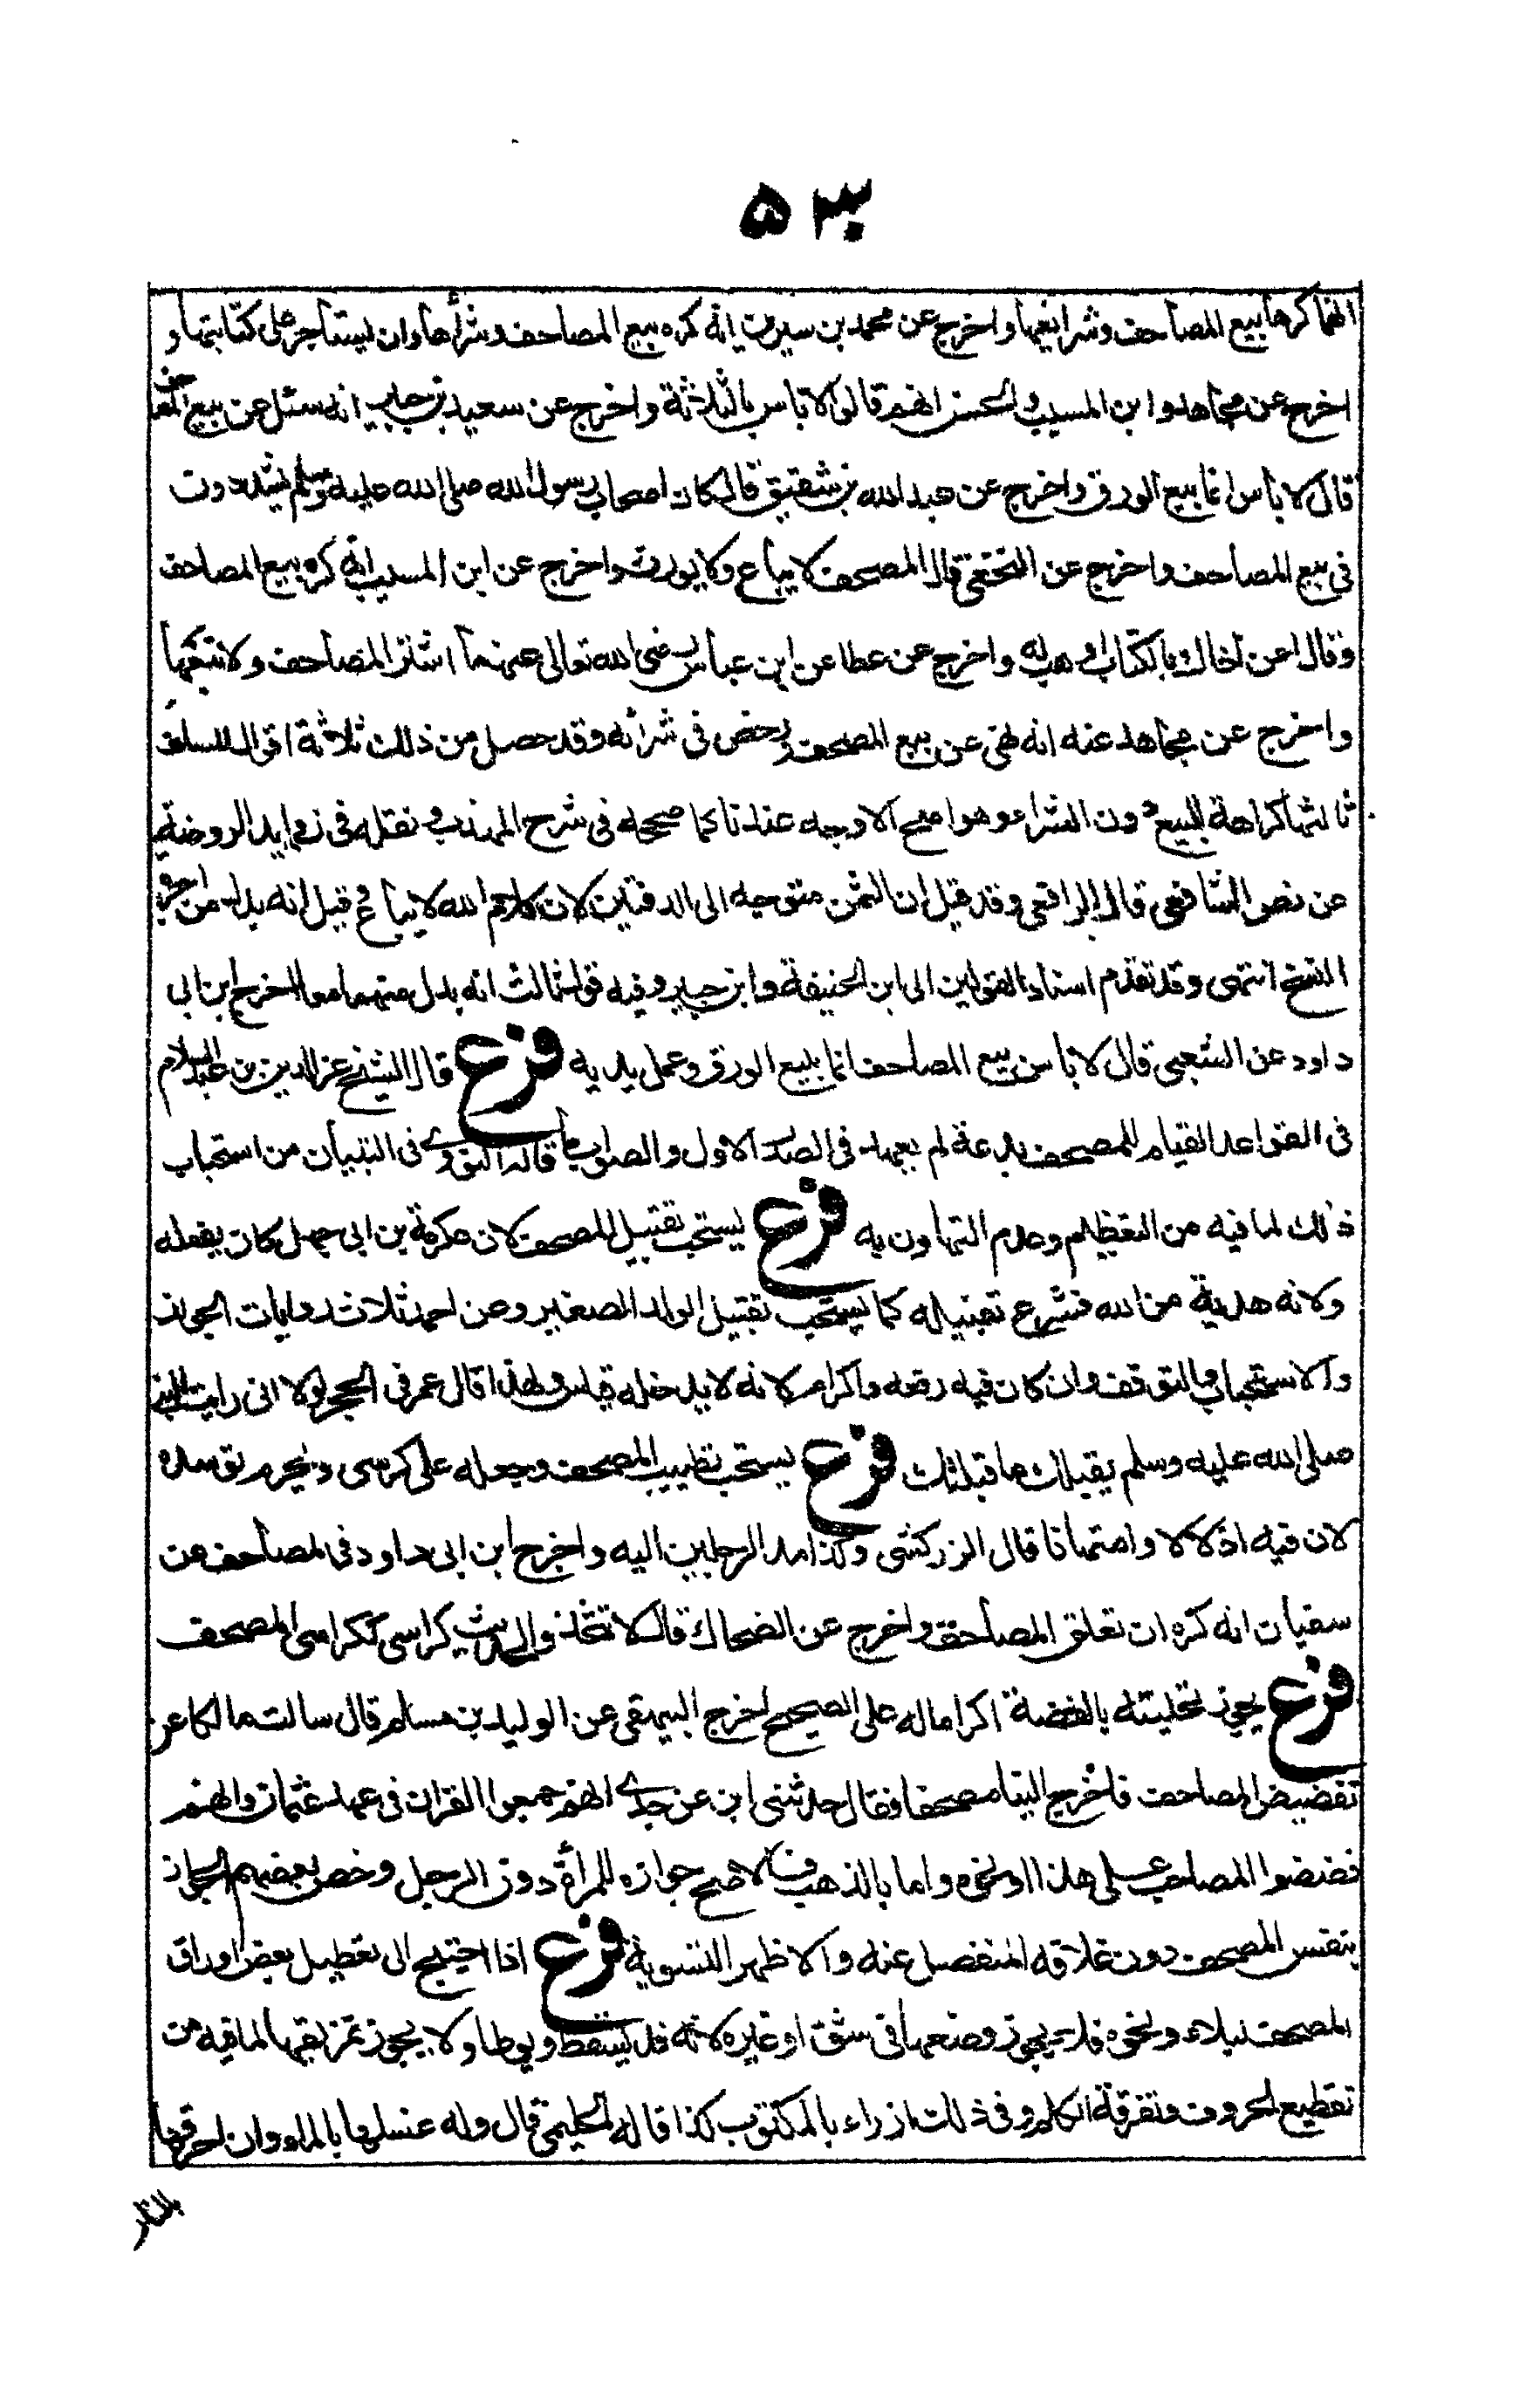 ۵۳۰
انهما كرها بيع المصاحف وشرائها واخرج عن محمد بن سيرين انه كره بيع المصاحف وشرأها وان يستأجر على كتابتها و
اخرج عن مجاهد وابن المسيب والحسن انهم قالوا لا باس بالثلاثة واخرج عن سعيد بن جبير انه سئل عن بيع المصاحف
قال لا بأس انما بيع الورق واخرج عن عبد الله بن شقيق قال كان اصحاب رسول الله صلى الله عليه وسلم يشددون
فى بيع المصاحف واخرج عن النخعى قال المصحف لا يباع ولا يورث واخرج عن ابن المسيب انه كره بيع المصاحف
وقال اعن اخاك بالكتاب او هب له واخرج عن عطا عن ابن عباس رضى الله تعالى عنهما اشتر المصاحف ولا تبعها
واخرج عن مجاهد عنه انه نهى عن بيع المصحف رخص فى شرائه وقد حصل من ذلك ثلاثة اقوال للسلف
ثالثها كراهة البيع دون الشراء وهو اصح الاوجه عندنا كما صححه فى شرح المهذب ونقله فى زوايد الروضة
عن نص الشافعى قال الرافعى وقد قيل ان الثمن متوجه الى الدفتين لان كلام الله لا يباع وقيل انه بدل من اجرة
النسخ انتهى وقد تقدم اسناد القولين الى ابن الحنيفة وابن جبير وفيه قول ثالث انه بدل منهما معا اخرج ابن ابى
داود عن الشعبى قال لا باس ببيع المصاحف انما يبيع الورق وعمل يديه فرع قال الشيخ عز الدين بن عبد السلام
فى القواعد القيام للمصحف بدعة لم يعهد فى الصدر الاول والصواب ما قاله النووى فى التبيان من استحباب
ذلك لما فيه من التعظيم وعدم التهاون به فرع يستحب تقبيل المصحف لان عكرمة بن ابى جهل كان يفعله
ولانه هدية من الله فشرع تقبيله كما يستحب تقبيل الولد الصغير وعن احمد ثلاث روايات الجواز
والاستحباب والتوقف وان كان فيه رفعه واكرام لانه لا يدخله قياس ولهذا قال عمر فى الحجر لولا انى رايت النبى
صلى الله عليه وسلم يقبلك ما قبلتك فرع يستحب تطييب المصحف وجعله على كرسى ويحرم توسده
لان فيه اذلالا وامتهانا قال الزركشى وكذا مد الرجلين اليه واخرج ابن ابى داود فى المصاحف عن
سفيان انه كره ان تعلق المصاحف واخرج عن الضحاك قال لا تتخذوا للحديث كراسى ككراسى المصحف
فرع يجوز تحليته بالفضة اكراما له على الصحيح اخرج البيهقى عن الوليد بن مسلم قال سالت مالكا عن
تفضيض المصاحف فاخرج الينا مصحفا فقال حدثنى ابى عن جدى انهم جمعوا القران فى عهد عثمان وانهم
فضضوا المصاحف على هذا او نحوه واما بالذهب فالاصح جوازه للمرأة دون الرجل وخص بعضهم الجواز
بنفس المصحف دون غلافه المنفصل عنه والاظهر التسوية فرع اذا احتيج الى تعطيل بعض اوراق
المصحف لبلاء ونحوه فلا يجوز وضعها فى شق او غيره لانه قد يسقط ويوطا ولا يجوز تمزيقها لما فيه من
تقطيع الحروف وتفرقة الكلم وفى ذلك ازراء بالمكتوب كذا قاله الحليمى قال وله غسلها بالماء وان احرقها
بالنار